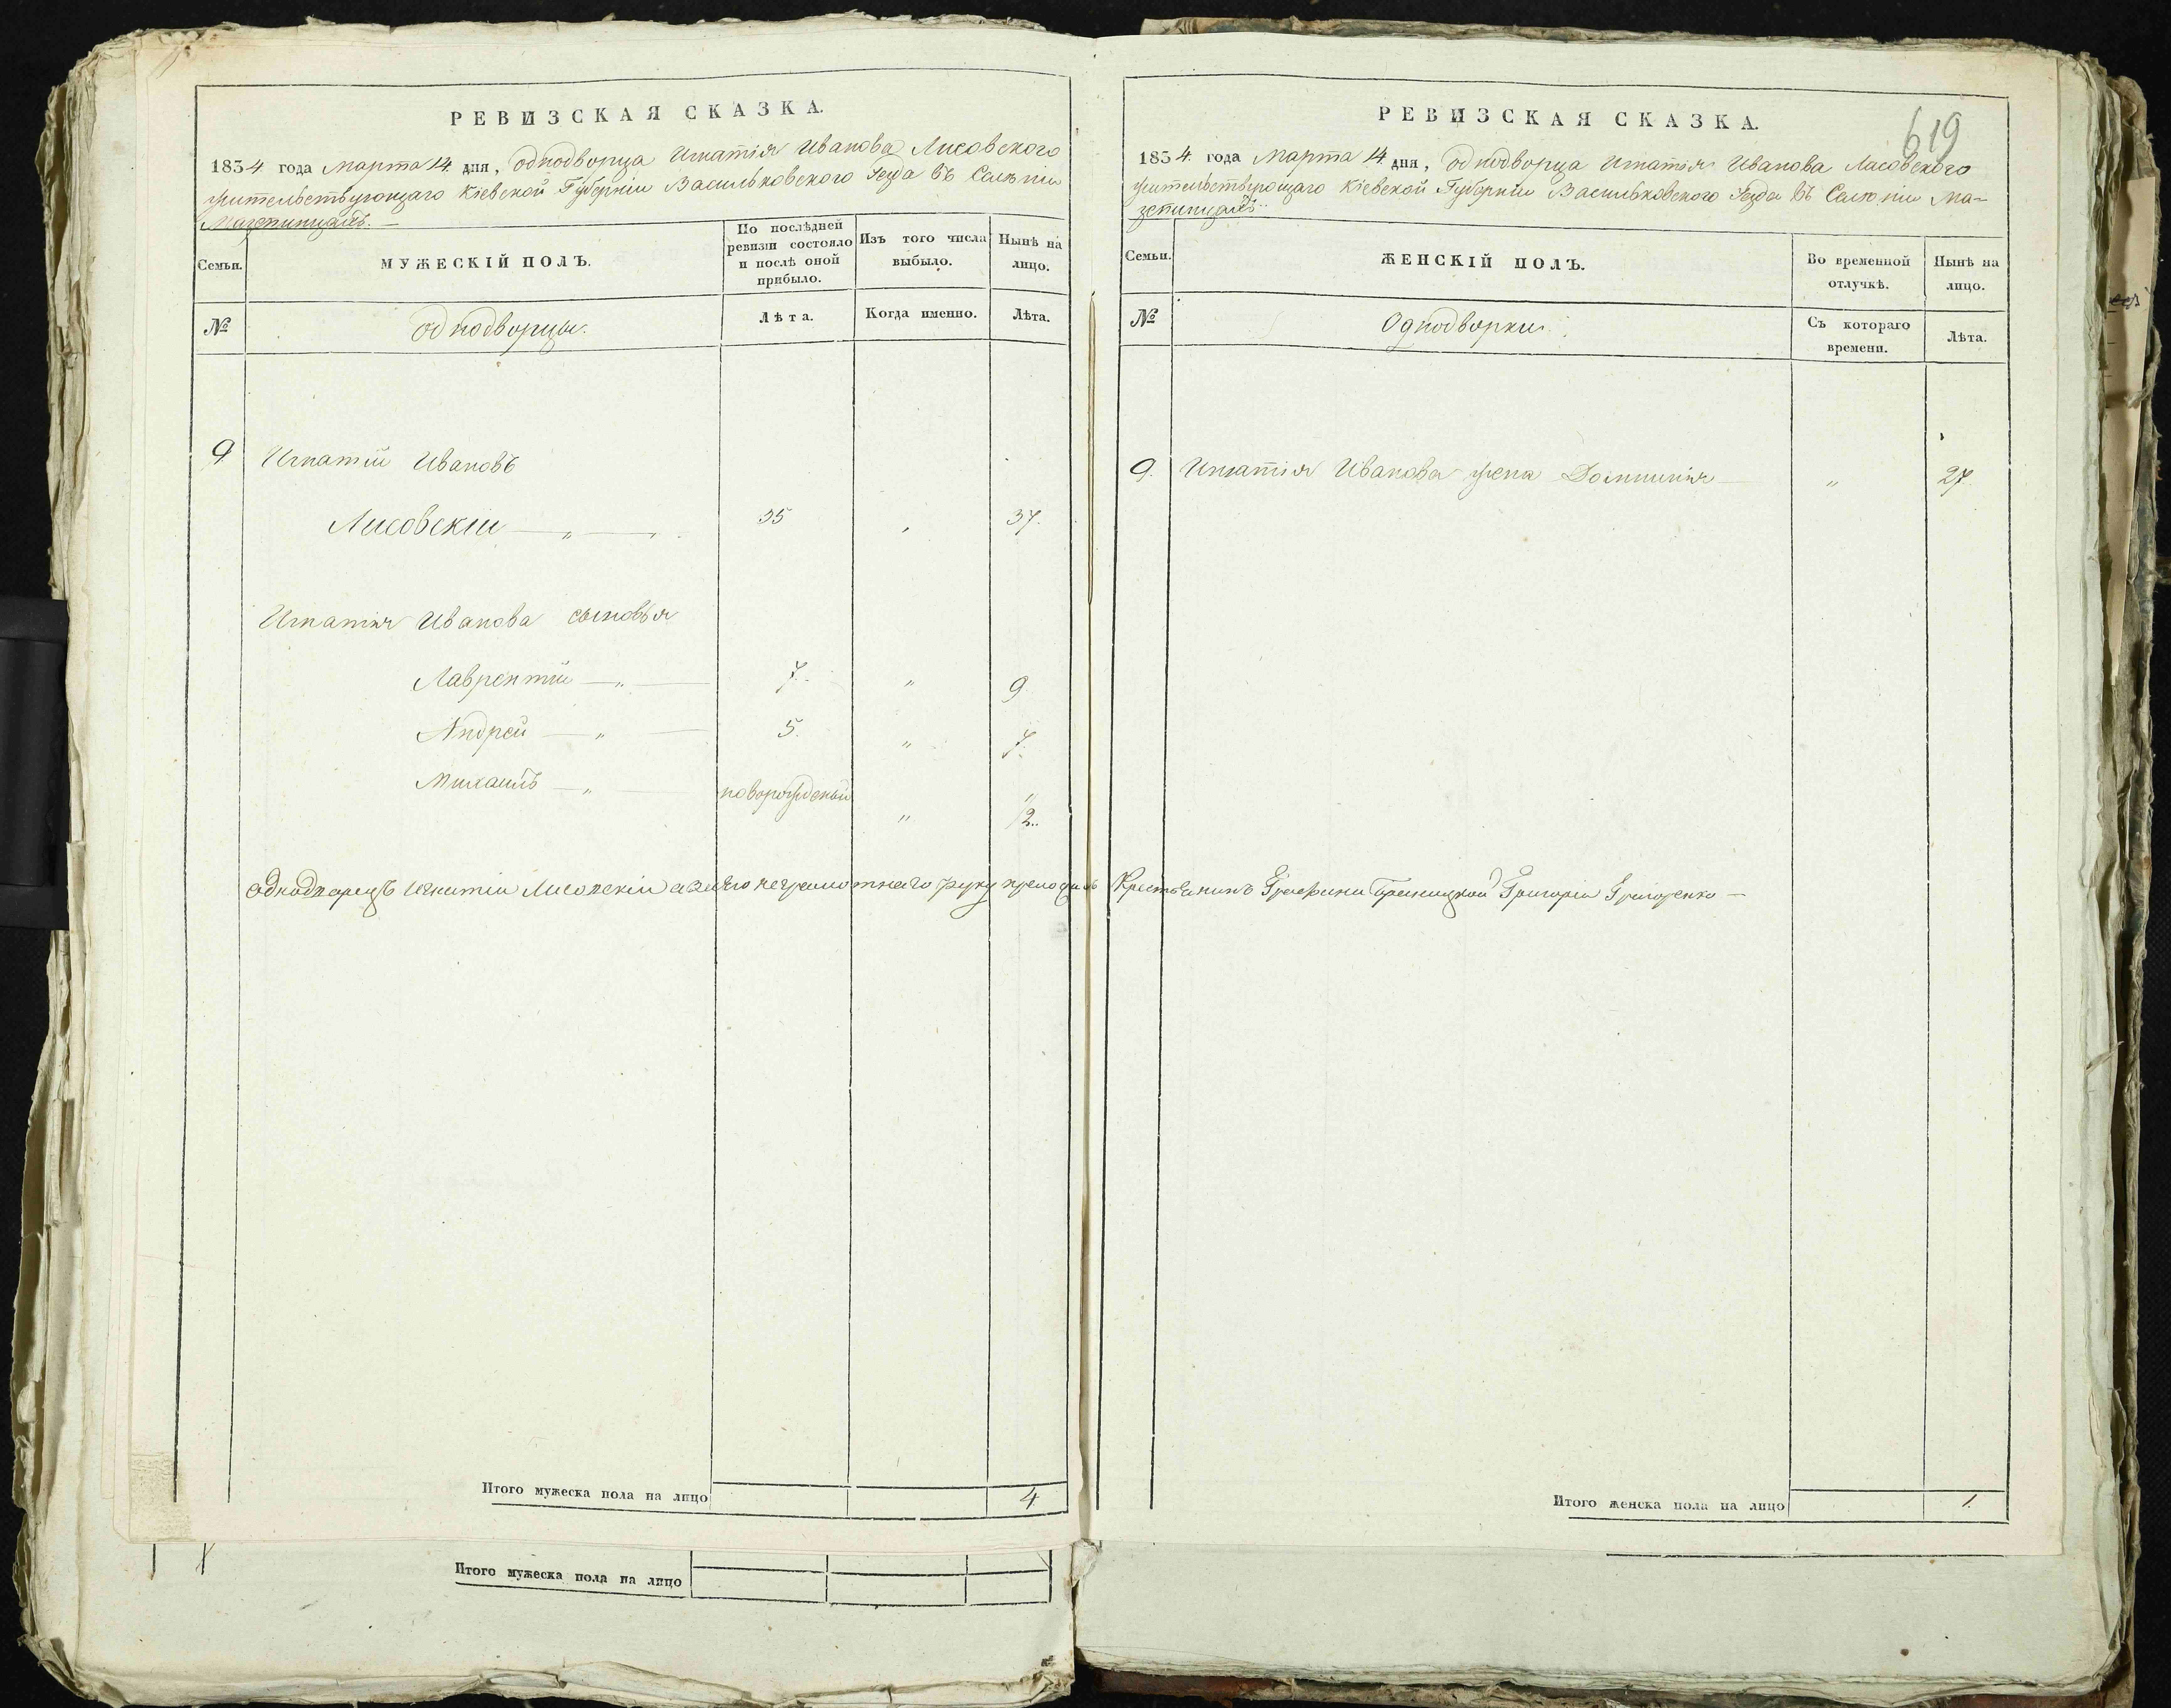 РЕВИЗСКАЯ СКАЗКА.
1834 года Марта 14 дня, однодворца Игнатія Иванова Лисовского
жительствующаго Кіевской Губерніи Васильковского Уезда въ Селѣніи
Мазепинцахъ. —
Семьи.
МУЖЕСКІЙ ПОЛЪ.
По послѣдней ревизіи состояло и послѣ оной прибыло.
Изъ того числа выбыло.
Нынѣ на лицо.
№
однодворцы.
Лѣта.
Когда именно.
Лѣта.
9 Игнатій Ивановъ
Лисовскій — „ — 35 „ 37.
Игнатія Иванова сыновья
Лаврентій — „ — 7. „ 9
Андрей — „ — 5. „ 7.
Михаилъ — „ — новорожденый „ 1/2..
Итого мужеска пола на лицо 4
Итого мужеска пола на лицо
РЕВИЗСКАЯ СКАЗКА.
619
1834 года Марта 14 дня, однодворца Игнатія Иванова Лисовского
жительствующаго Кіевской Губерніи Васильковского Уезда въ Селѣніи Ма-
зепинцахъ..
Семьи.
ЖЕНСКІЙ ПОЛЪ.
Во временной отлучкѣ.
Нынѣ на лицо.
№
Однодворки.
Съ котораго времени.
Лѣта.
9. Игнатія Иванова жена Доминикія — „ 27
однодворецъ Игнатій Лисовскій а за его неграмотнаго руку приложилъ Крестьянинъ Графини Браницкой Григорій Григоренко —
Итого женска пола на лицо 1.